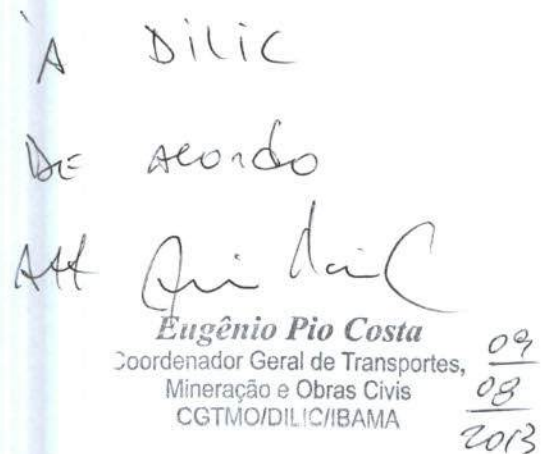 À DILIC
DE Acordo
Att
Eugênio Pio Costa
Coordenador Geral de Transportes,
Mineração e Obras Civis
CGTMO/DILIC/IBAMA
09
08
2013